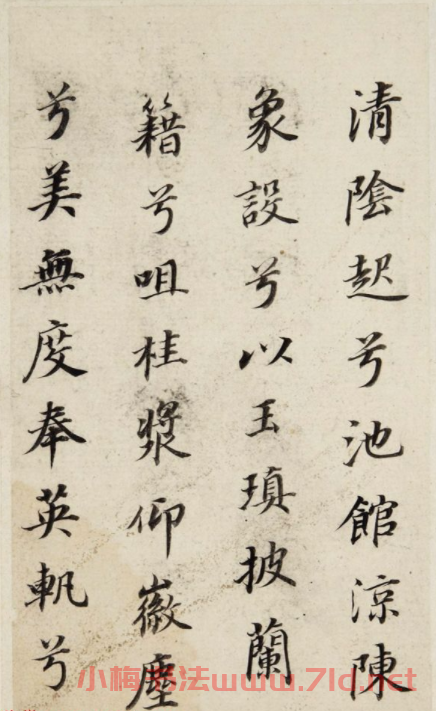 清陰起兮池館涼陳
象設兮以玉瑱披蘭
籍兮咀桂漿仰徽塵
兮美無度奉英軌兮
小梅书法www.7ld.net